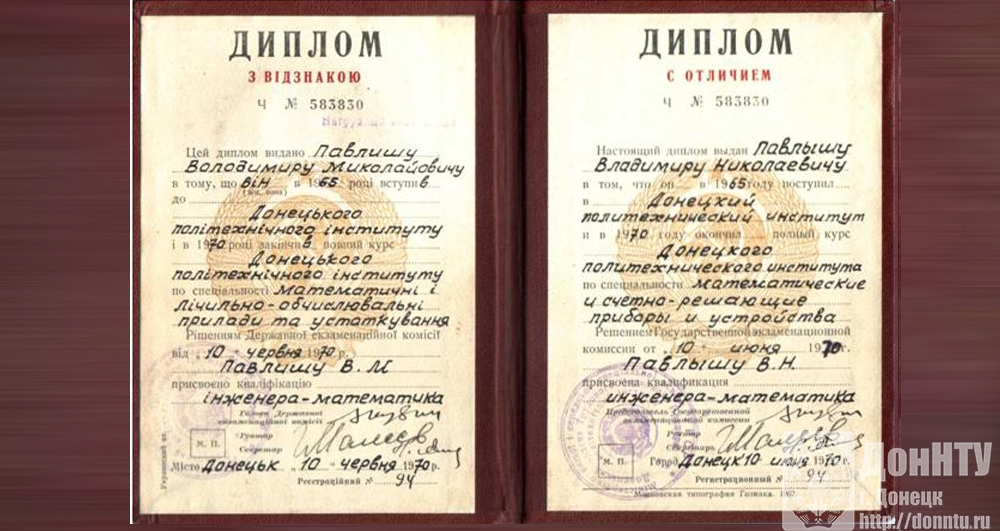 ДИПЛОМ
З ВІДЗНАКОЮ
Ч № 583830
Цей диплом видано Павлишу
Володимиру Миколайовичу
в тому, що він в 1965 році вступив
до
Донецького
політехнічного інституту
і в 1970 році закінчив повний курс
Донецького
політехнічного інституту
по спеціальності математичні і
лічильно-обчислювальні
прилади та устаткування
Рішенням Державної екзаменаційної комісії
від „10" червня 1970 р.
Павлишу В. М
присвоєно кваліфікацію
інженера-математика
Голова Державної
екзаменаційної комісії
Ректор
М. П.
Секретар
Місто Донецьк „10" червня 1970 р.
Реєстраційний № 94
Украинский яз.
ДИПЛОМ
С ОТЛИЧИЕМ
Ч № 583830
Настоящий диплом выдан Павлышу
Владимиру Николаевичу
в том, что он в 1965 году поступил
в Донецкий
политехнический институт
и в 1970 году окончил полный курс
Донецкого
политехнического института
по специальности математические
и счетно-решающие
приборы и устройства
Решением Государственной экзаменационной
комиссии от „10" июня 1970 г.
Павлышу В. Н.
присвоена квалификация
инженера-математика
Председатель Государственной
экзаменационной комиссии
Ректор
Секретарь
М. П.
Город Донецк 10 июня 1970
Регистрационный № 94
Московская типография Гознака. 1967.
ДонНТУ
г. Донецк
http://donntu.ru